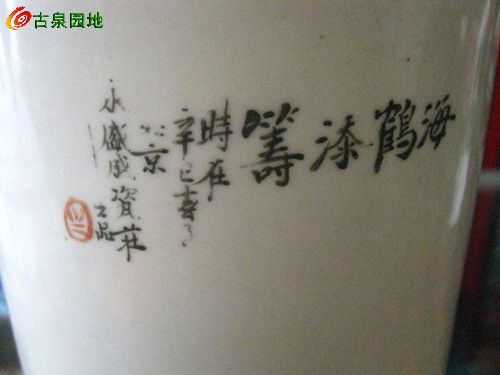 古泉园地
海鶴添籌
時在
辛巳春
北京
永盛成資莊
上品